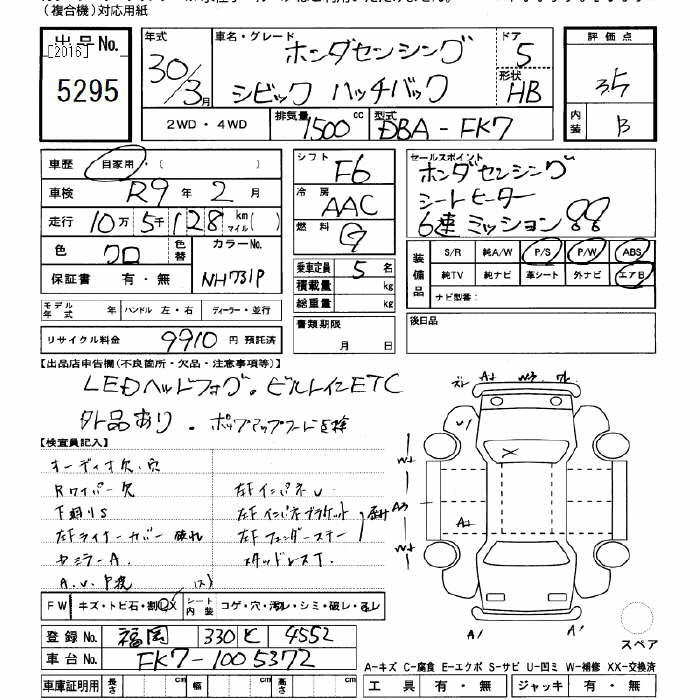 (複合機)対応用紙
出品No.
[2016]
5295
年式 30/3月
車名・グレード ホンダセンシング
シビック ハッチバック
ドア 5
形状 HB
評価点 3.5
内装 B
2WD・4WD
排気量 1500cc
型式 DBA-FK7
車歴 自家用・( )
車検 R9年 2月
走行 10万 5千 128 km マイル( )
色 クロ 色替
カラーNo. NH731P
保証書 有・無
モデル年式 年 ハンドル 左・右 ディーラー・並行
リサイクル料金 9910円 預託済
シフト F6
冷房 AAC
燃料 G
乗車定員 5名
積載量 kg
総重量 kg
書類期限
月 日
セールスポイント
ホンダセンシング
シートヒーター
6速ミッション
装備品
S/R 純A/W P/S P/W ABS
純TV 純ナビ 革シート 外ナビ エアB
ナビ型番:
後日品
【出品店申告欄(不良箇所・欠品・注意事項等)】
LEDヘッドフォグ。ビルトインETC
外品あり。ポップアップフード
【検査員記入】
オーディオ欠、穴
Rワイパー欠
下廻りS
左Fライナーカバー 破れ
左Fインパネ U
左Fインパネブラケット
左Fフェンダーステー
スタッドレスT.
FW キズ・トビ石・割・X
シート内装 コゲ・穴・汚レ・シミ・破レ・スレ
登録No. 福岡 330 と 4552
車台No. FK7-1005372
車庫証明用 長さ cm 幅 cm 高さ cm
A1 W3
U1
A3
A2
A1 A1
スペア
A-キズ C-腐食 E-エクボ S-サビ U-凹ミ W-補修 XX-交換済
工具 有・無 ジャッキ 有・無